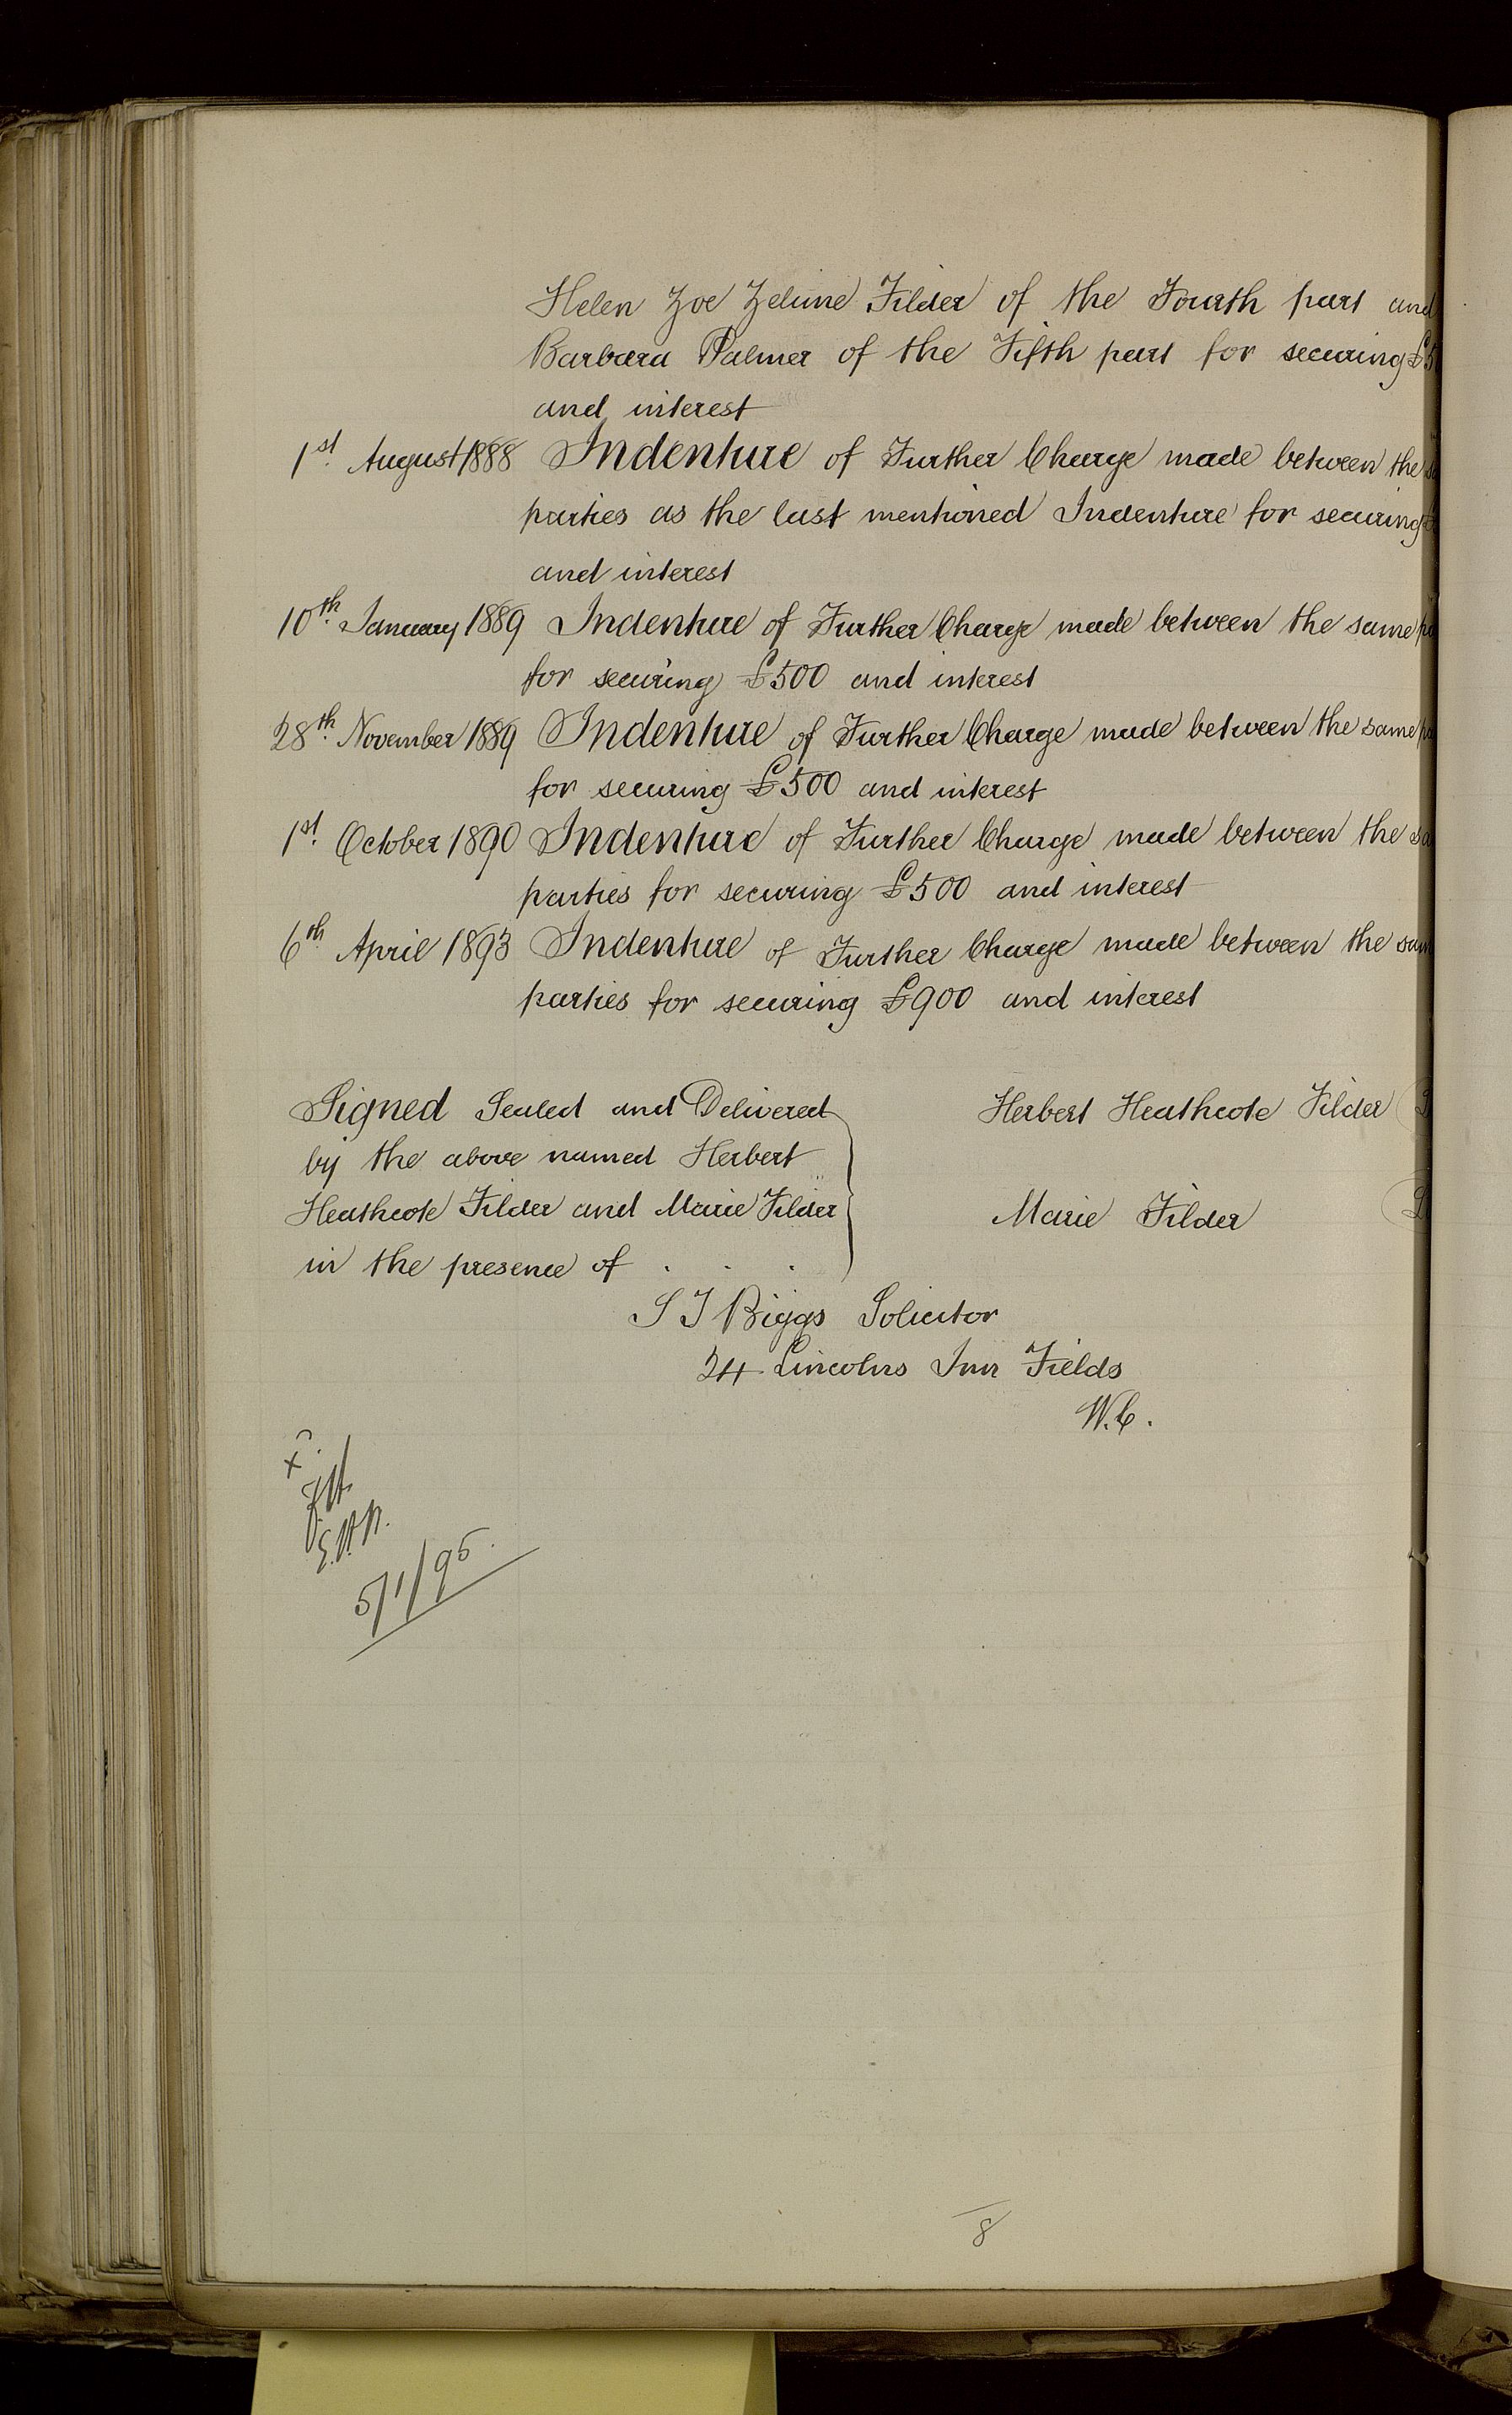 Helen Zoe Zelime Filder of the Fourth part and
Barbara Palmer of the Fifth part for securing £5
and interest
1st. August 1888 Indenture of Further Charge made between the
parties as the last mentioned Indenture for securing
and interest
10th. January 1889 Indenture of Further Charge made between the same
for securing £500 and interest
28th. November 1889 Indenture of Further Charge made between the same
for securing £500 and interest
1st. October 1890 Indenture of Further Charge made between the
parties for securing £500 and interest
6th. April 1893 Indenture of Further Charge made between the
parties for securing £900 and interest
Signed Sealed and Delivered
by the above named Herbert
Heathcote Filder and Marie Filder
in the presence of . . .
Herbert Heathcote Filder
Marie Filder
S J Biggs Solicitor
24 Lincolns Inn Fields
W.C.
5/1/95.
8